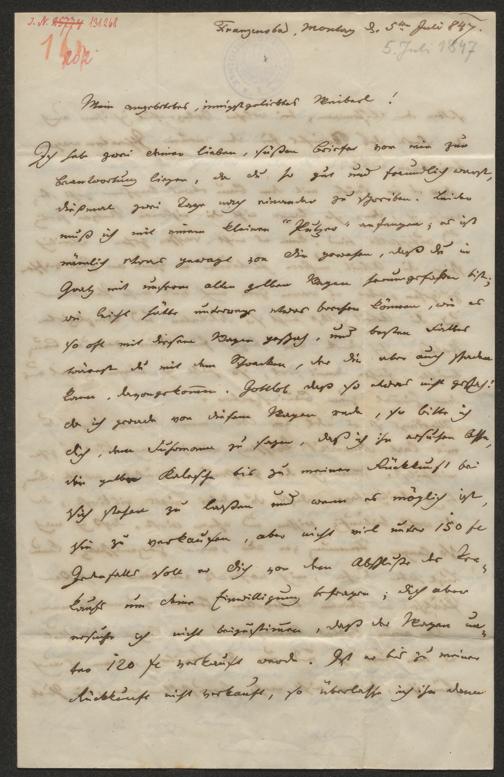 I. N. 85774 131268
202
Franzensbad, Montag d. 5ten Juli 847.
5. Juli 1847
Mein angebetetes, innigstgeliebtes Weiberl!
Ich habe zwei deiner lieben, süßen Briefe von mir zur
Beantwortung liegen, da du so gut und freundlich warst,
dießmal zwei Tage nach einander zu schreiben. Leider
muß ich mit einem kleinen "Putzer" anfangen; es ist
nämlich etwas gewagt von dir gewesen, daß du in
Gratz mit unserem alten gelben Wagen herumgefahren bist;
wie leicht hätte unterwegs etwas brechen können, wie es
so oft mit diesem Wagen geschah, und besten Falles
wärest du mit dem Schrecken, der dir aber auch schaden
kann, davongekommen. Gottlob daß so etwas nicht geschah!
da ich gerade von diesem Wagen rede, so bitte ich
dich, dem zu sagen, daß ich ihn ersuchen lasse,
die gelbe Kalesche bis zu meiner Rückkunft bei
sich stehen zu laßen und wenn es möglich ist,
sie zu verkaufen, aber nicht viel unter 150 fl
Jedenfalls soll er dich vor dem Abschluße des Ver-
kaufs um deine Einwilligung befragen; dich aber
ersuche ich nicht beizustimmen, daß der Wagen un-
ter 120 fl verkauft werde. Ist er bis zu meiner
Rückkunft nicht verkauft, so überlasse ich ihn dann